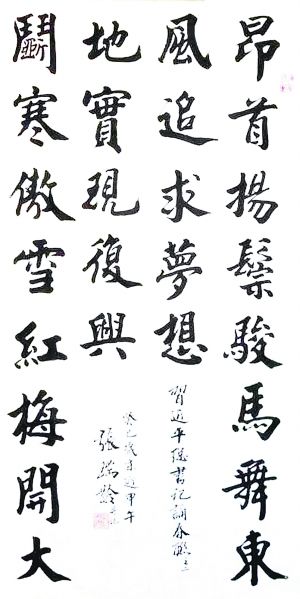 昂首揚鬃駿馬舞東
風追求夢想
習近平總書記春聯
鬭寒傲雪紅梅開大
地實現復興
癸巳歲迎甲午
張瑞齡